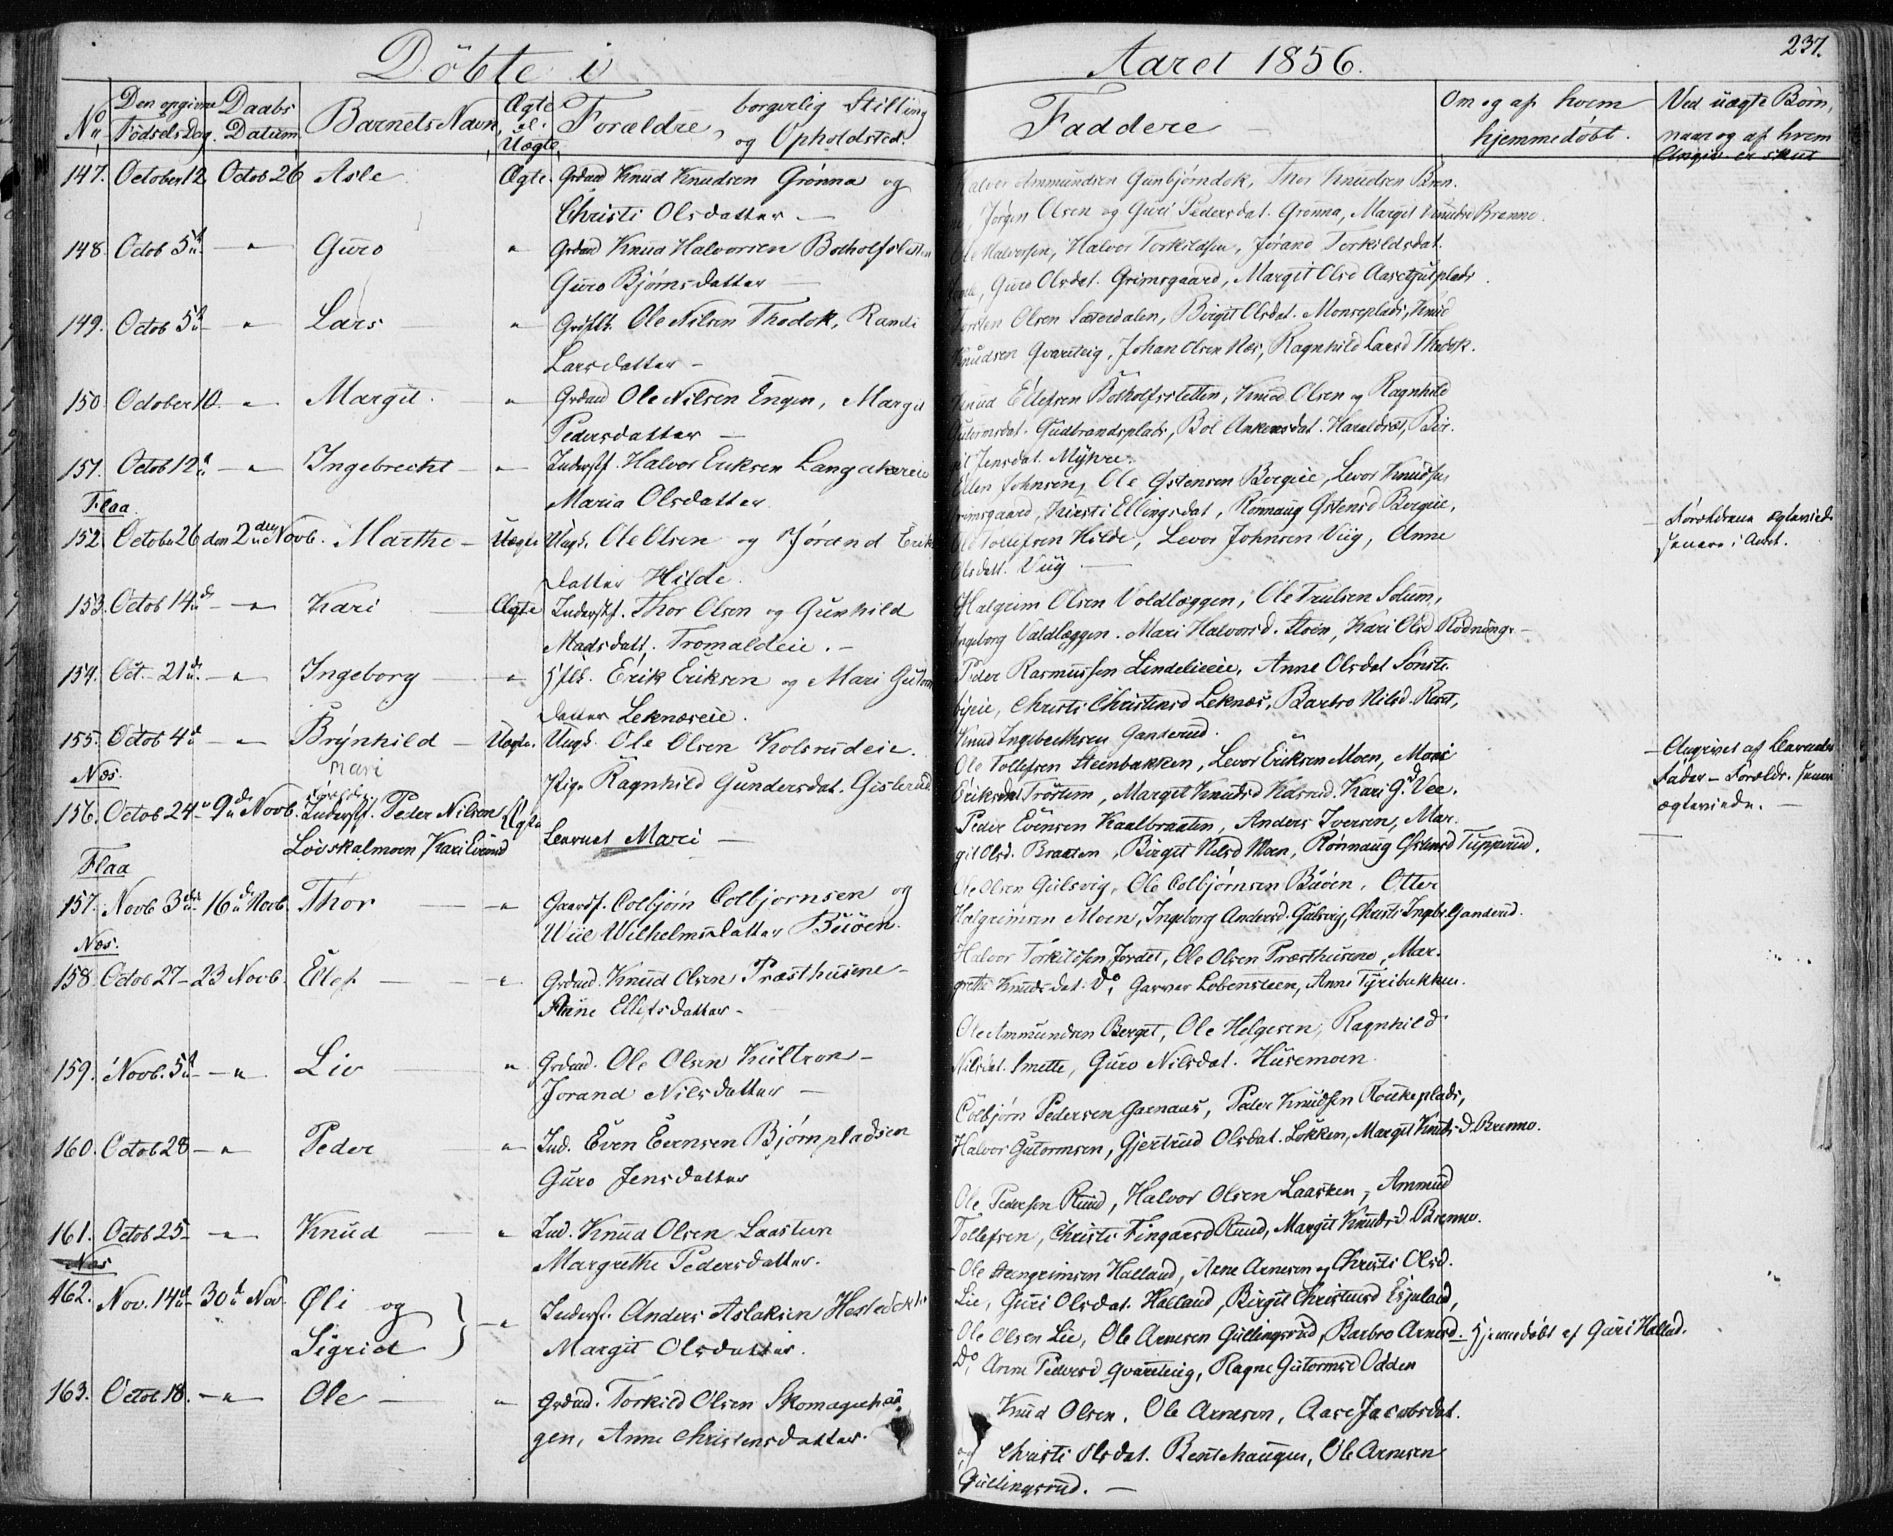 Döbte i Aaret 1856.
237.
No Den opgivne Fødsels Dag. Daabs Datum. Barnets Navn Ægte el. Uægte. Forældre, borgerlig Stilling og Opholdsted.
Faddere Om og af hvem hjemmedøbt. Ved uægte Børn, naar og af hvem
147. October 12 Octob 26 Asle Ægte. Grdmd Knud Knudsen Grønna og
Christi Olsdatter —
Halvor Ammundsen Gunbjørndok, Thor Knudsen Bren.
Jørgen Olsen og Guri Pedersdat. Grønna, Margit Brenno.
148. Octob 5 — " Guro " Grdmd Knud Halvorsen
Guro Bjørnsdatter —
Ole Halvorsen, Halvor Torkildsen, Jørand Torkildsdat.
Guro Olsdat. Grimsgaard, Margit Olsd
149. Octob 5 — " Lars " Ole Nilsen Thodok, Randi
Larsdatter —
Torsten Olsen Sæterdalen, Birgit Olsdat. Monseplads, Knud
Knudsen Qvarnteig, Johan Olsen Næs, Ragnhild Larsd Thodok.
150. October 10. — " Margit. — " Grdmd Ole Nilsen Engen, Margit
Pedersdatter —
Knud Ellefsen Botholfsstetten, Knud Olsen og Ragnhild
Gutormsdat. Gudbrandsplads,
Jensdat. Myhre.
151. Octob 12 — " Ingebrecht — " Inderst. Halvor Eriksen
Maria Olsdatter
Ellen Johnsen, Ole Østensen Bergeie, Levor Knudsen
Grimsgaard, Kirsti Ellingsdat, Rønnaug Østensd Bergeie,
Flaa
152. October 26 den 2 Novb. Marthe — Uægte Ungk. Ole Olsen og Jørand Erik
datter Hilde.
Ole Tollefsen Hilde, Levor Johnsen Viig, Anne
Olsdatt. Viig —
Forældrene ægteviede
senere i Aaret.
153. Octob 14 — " Kari — Ægte Inderst. Thor Olsen og Gunhild
Madsdatt. Tromaldeie. —
Halgrim Olsen Voldlæggen, Ole Trulsen Solum,
Ingeborg Valdlæggen. Mari Halvorsd. Kari Olsd
154. Oct. 21 — " Ingeborg — " Erik Eriksen og Mari Gutorms
datter Leknæseie.
Peder Rasmussen Lindelieeie, Anne Olsdat
Christi Christensd Leknæs, Barbro Nilsd.
Knud Ingebrethsen Ganderud.
155. Octob 4 — " Brynhild — Uægte. Ungk. Ole Olsen Kolsrudeie.
Pige Ragnhild Gundersdat. Gislerud
Ole Tollefsen Steinbakken, Levor Eriksen Moen, Mari
Eriksdat Trøstem, Margit Knudsd Kolsrud. Kari G. Vee.
Angivet af Barnets
Fader — Forældr. senere
ægteviede. —
Næs. Mari
156. Octob 24 — 9 Novb. Forældre Inderst. Peder Nilsen Ægte
Løvskalmoen Kari Evensd Barnet Mari —
Peder Evensen Kaalbraaten, Anders Iversen, Mar.
git Olsd. Braaten, Birgit Nilsd Moen, Rønnaug Østensd Tupperud.
Flaa
157. Novb 3 — 16 Novb. Thor — " Gaardf. Colbjørn Colbjørnsen og
Wilhelmsdatter Buøen.
Ole Olsen Gulsvig, Ole Colbjørnsen Buøen. Otter
Halgrimsen Moen, Ingeborg Andersd. Gulsvig, Christi Ingebr. Ganderud.
Næs.
158. Octob 27 — 23 Novb. Ellef — " Grdmd. Knud Olsen Præsthusene —
Anne Ellefsdatter —
Halvor Torkildsen Jordet, Ole Olsen Præsthusene, Mar.
grethe Knudsdat. Do, Garver Lobensteen, Anne Tyribakken.
159. Novb. 5 — " Liv " Grdmd. Ole Olsen Kultron —
Jorand Nilsdatter —
Ole Ammundsen Berget, Ole Helgesen, Ragnhild
Nilsdat. Smette, Guro Nilsdat. Husemoen.
160. Octob 28 — " Peder — " Ind. Even Evensen Bjørnpladsen
Guro Jensdatter
Colbjørn Pedersen Garnaas, Peder Knudsen Roukeplads,
Halvor Gutormsen, Gjertrud Olsdat. Løkken, Margit Knuds D. Brenno.
161. Octob 25 — " Knud — " Ind. Knud Olsen Laasken
Margrethe Pedersdatter.
Ole Pedersen Ruud, Halvor Olsen Laasken, Ammund
Tollefsen, Christi Fingarsd Ruud, Margit Knudsd. Brenno.
Næs
162. Nov. 14 — 30 Nov. Øli og
Sigrid } — " Inderst. Anders Aslaksen
Margit Olsdatter.
Ole Steengrimsen Halland, Arne Arnesen og Christi Olsd.
Lie, Guri Olsdat. Halland, Birgit Christensd Espeland,
Ole Olsen Lie, Ole Arnesen Gullingsrud, Barbro Arnesd. Hjemmedøbt af Guri Halland.
Do, Anne Pedersd Qvarnteig, Ragne Gutormsd Odden
163. Octob 18. — " Ole — " Grdmd. Torkild Olsen Skomagerhau
gen, Anne Christensdatter.
Knud Olsen, Ole Arnesen, Aase Jacobsdat.
og Christi Olsdat. Bentehaugen, Ole Arnesen
Gullingsrud. —